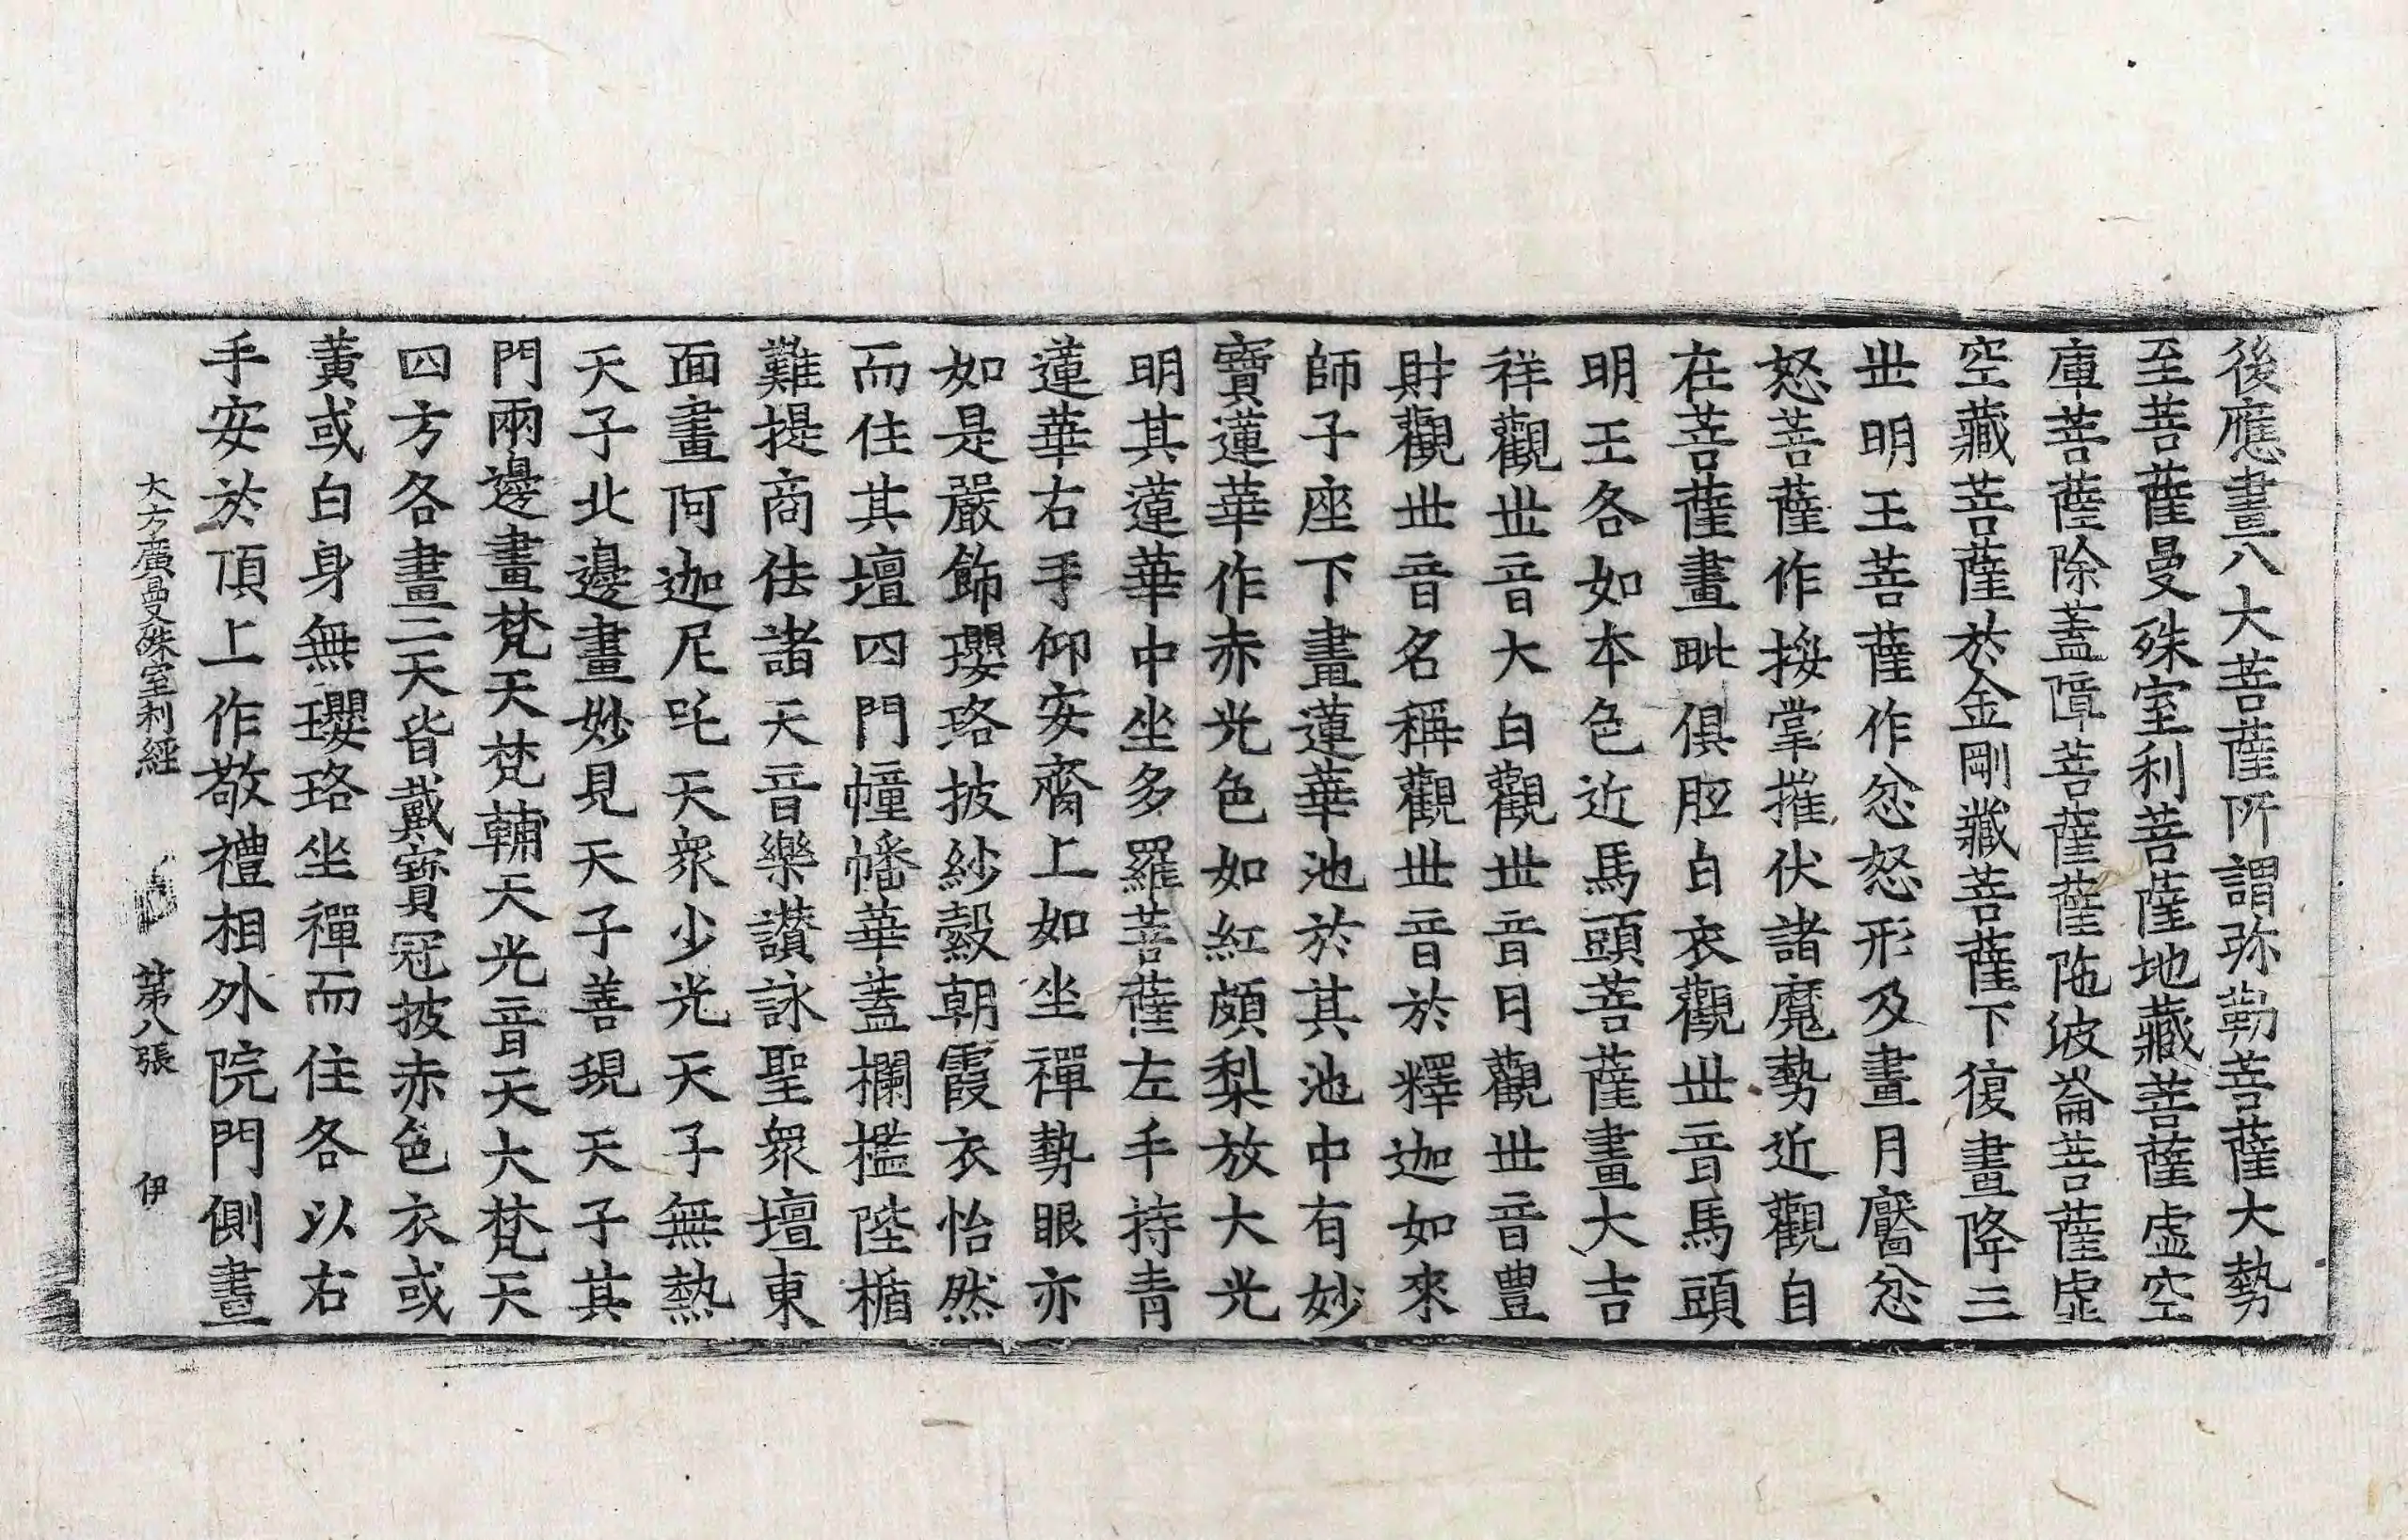 後應畫八大菩薩所謂弥勒菩薩大勢
至菩薩曼殊室利菩薩地藏菩薩虛空
庫菩薩除蓋障菩薩薩陁波崙菩薩虛
空藏菩薩於金剛藏菩薩下復畫降三
世明王菩薩作忿怒形及畫月黶忿
怒菩薩作按掌摧伏諸魔勢近觀自
在菩薩畫毗俱胝白衣觀世音馬頭
明王各如本色近馬頭菩薩畫大吉
祥觀世音大白觀世音月觀世音豊
財觀世音名稱觀世音於釋迦如來
師子座下畫蓮華池於其池中有妙
寶蓮華作赤光色如紅頗梨放大光
明其蓮華中坐多羅菩薩左手持青
蓮華右手仰安齊上如坐禪勢眼亦
如是嚴飾瓔珞披紗縠朝霞衣怡然
而住其壇四門幢幡華蓋欄檻陛楯
難提商佉諸天音樂讃詠聖衆壇東
面畫阿迦尼吒天衆少光天子無熱
天子北邊畫妙見天子善現天子其
門兩邊畫梵天梵輔天光音天大梵天
四方各畫二天皆戴寶冠披赤色衣或
黃或白身無瓔珞坐禪而住各以右
手安於頂上作敬禮相外院門側畫
大方廣曼殊室利經 第八張 伊